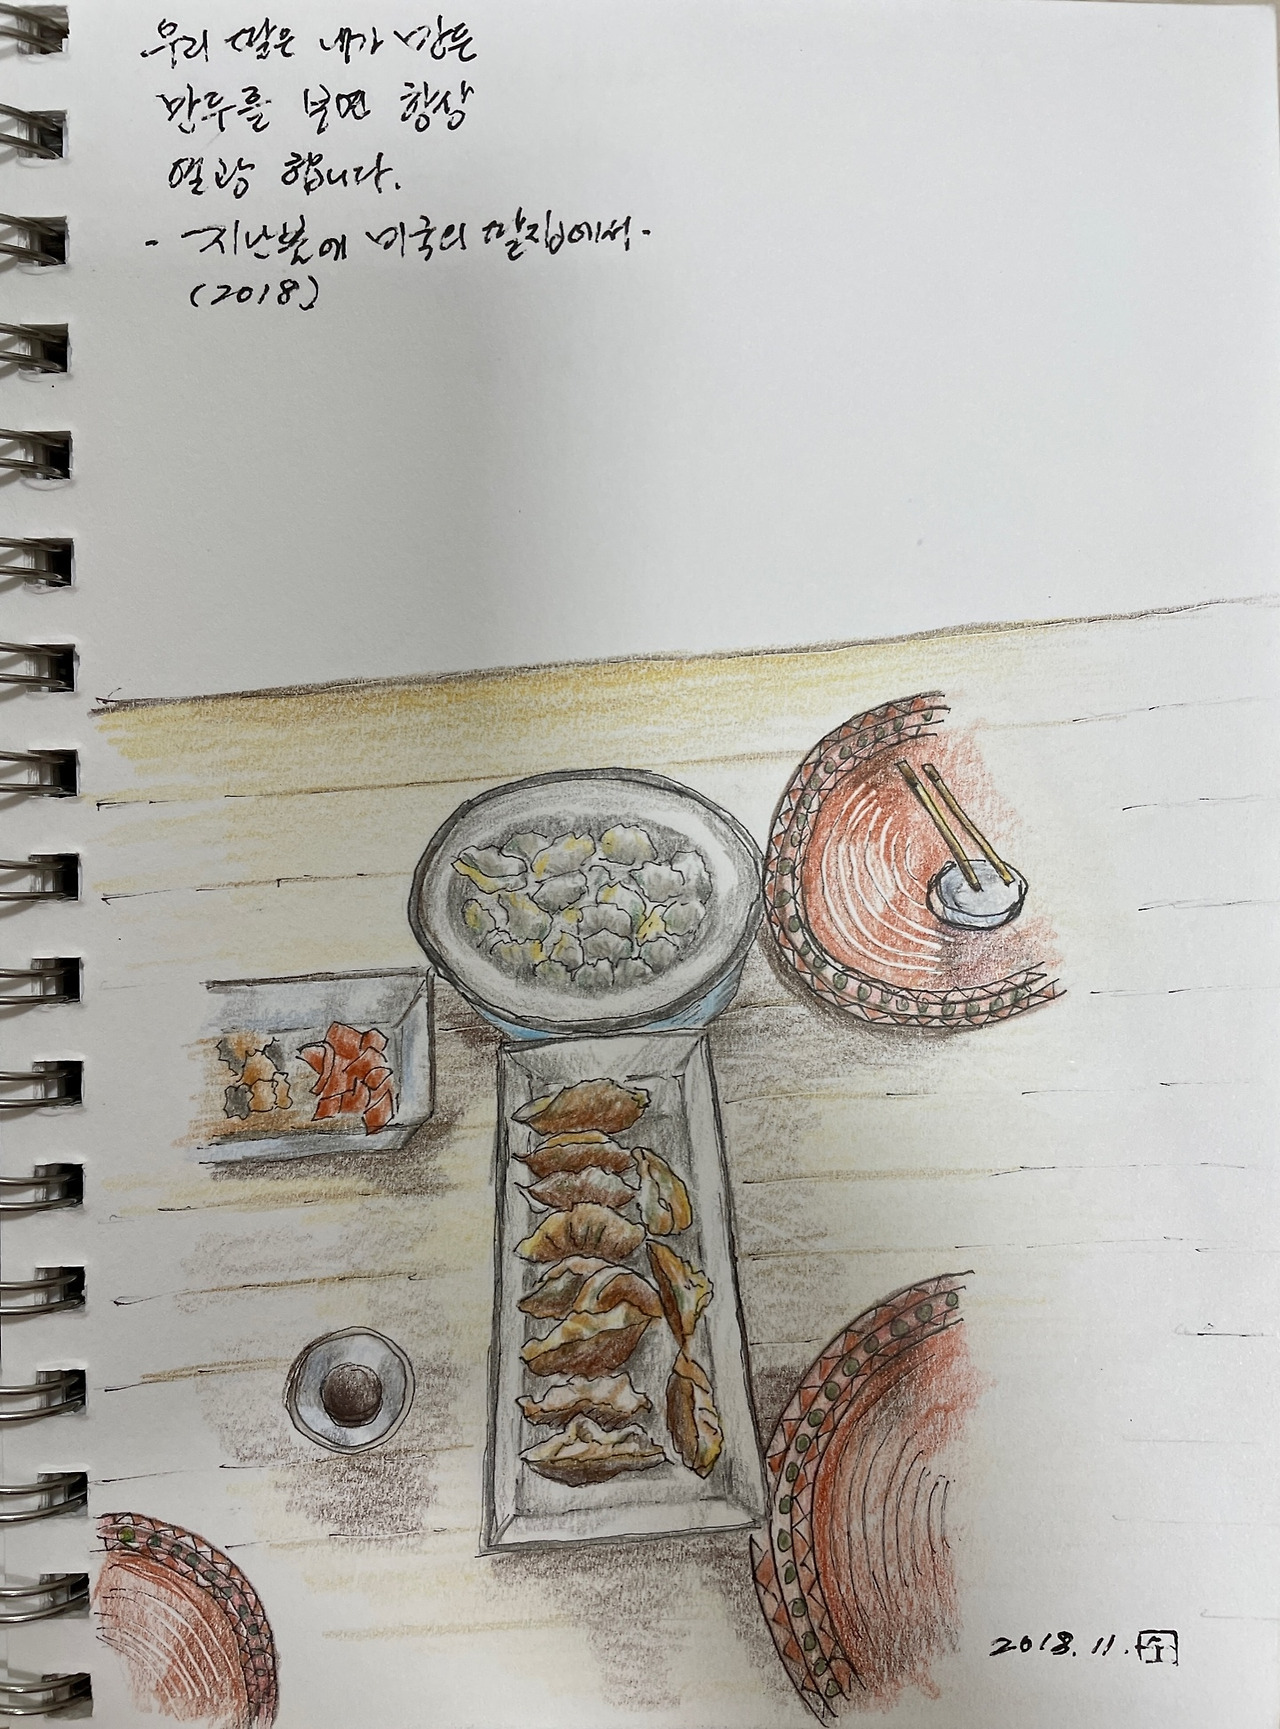 우리 딸은 내가 만든
만두를 보면 항상
열광 합니다.
- 지난봄에 미국의 딸집에서 -
(2018)
2018. 11.